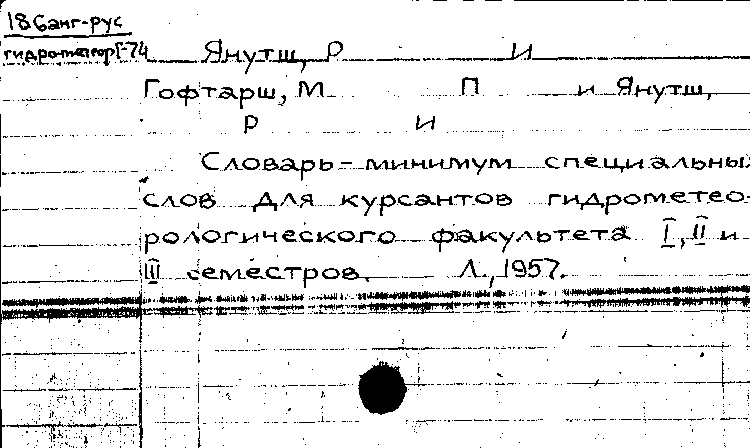 186 анг-рус
гидрометеор Г-74
Янутш, Р И
Гофтарш, М П и Янутш,
Р И
Словарь-минимум специальны
слов для курсантов гидрометео-
рологического факультета I, II и
III семестров. Л., 1957.